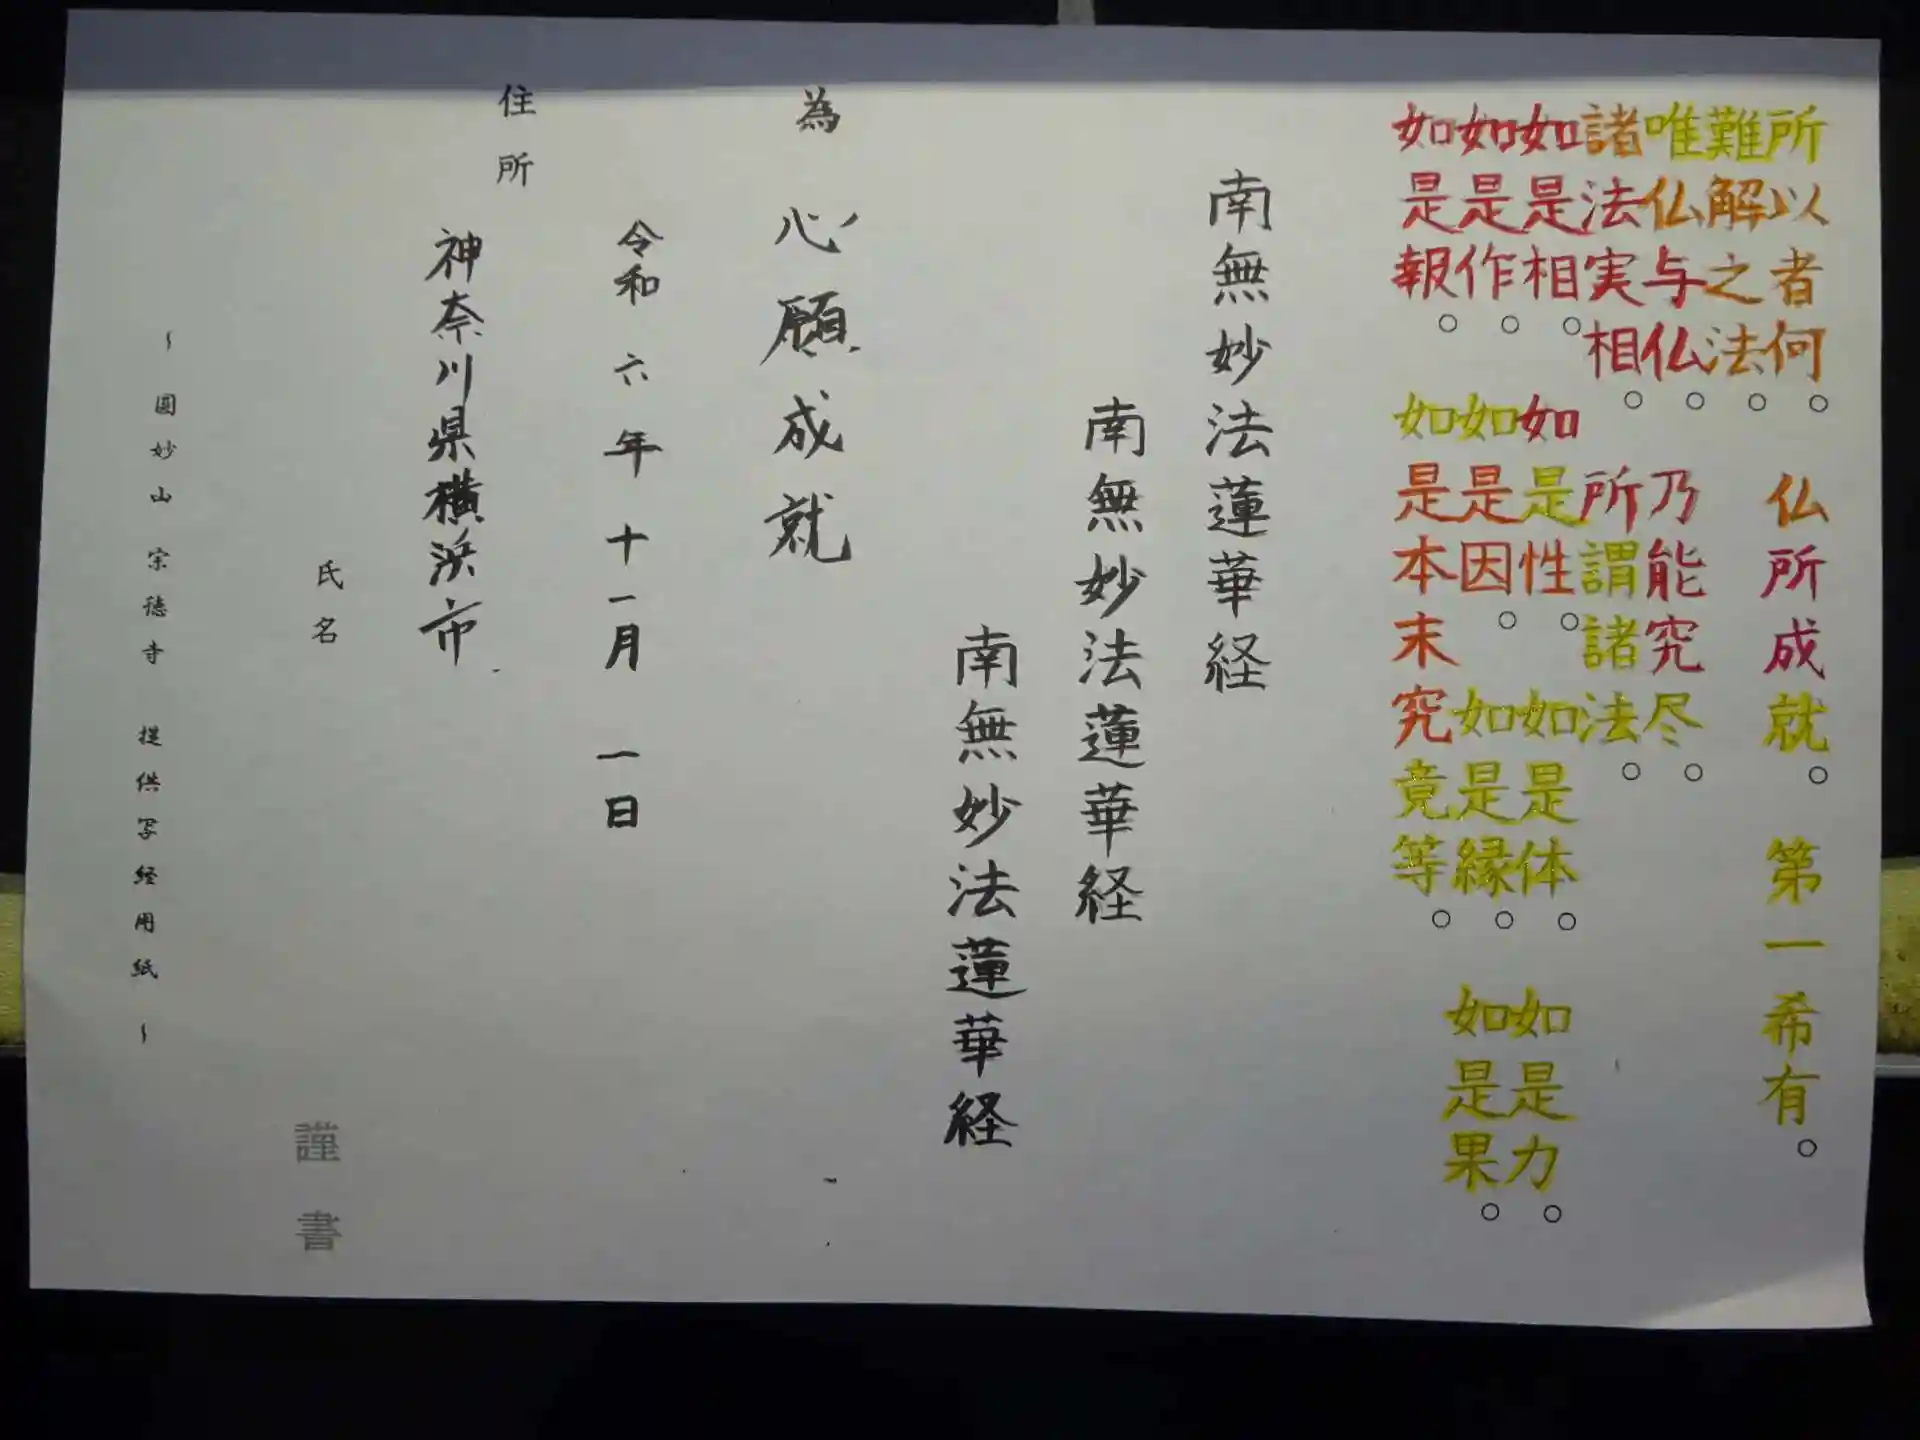 所以者何。仏所成就。第一希有。
難解之法。
唯仏与仏。乃能究尽。
諸法実相。所謂諸法。
如是相。如是性。如是体。如是力。
如是作。如是因。如是縁。如是果。
如是報。如是本末究竟等。
南無妙法蓮華経
南無妙法蓮華経
南無妙法蓮華経
為 心願成就
令和 六 年 十一月 一日
住所 神奈川県横浜市
氏名 謹書
~ 圓妙山 宗徳寺 提供写経用紙 ~